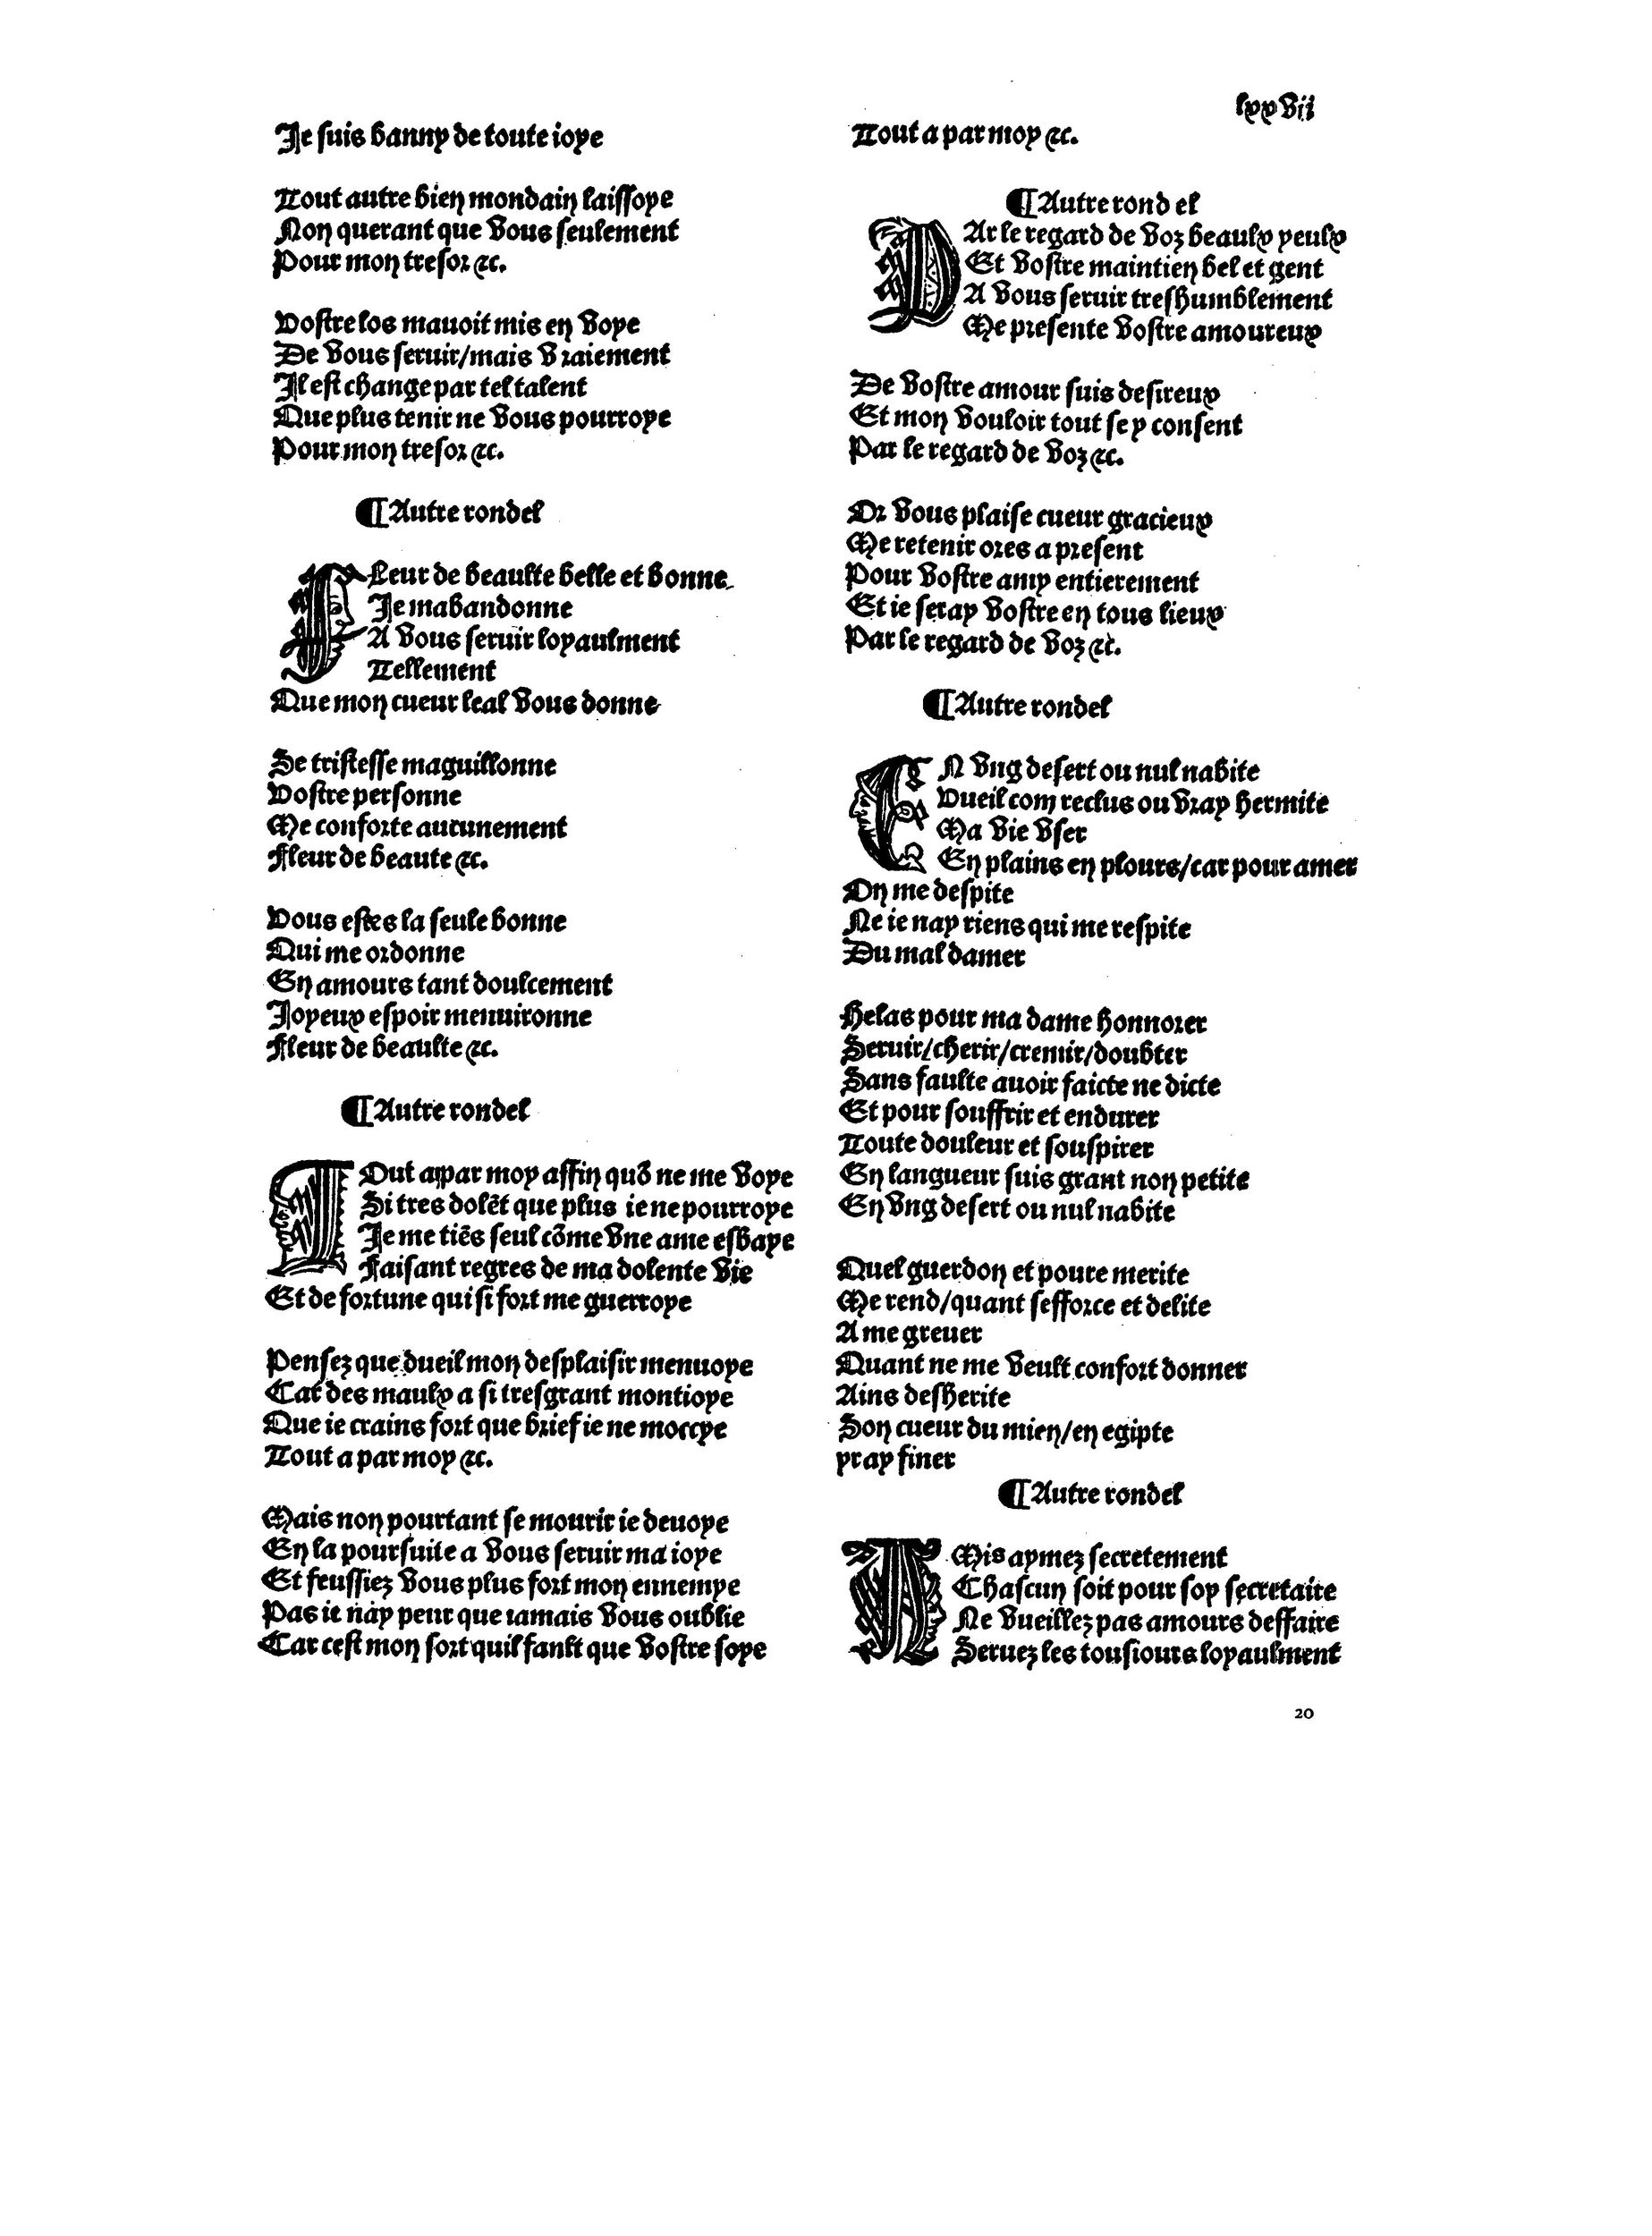 lxxvii
Je suis banny de toute ioye
Tout autre bien mondain laissoye
Non querant que vous seulement
Pour mon tresor &c.
Vostre los mauoit mis en voye
De vous seruir/mais vraiement
Il est change par tel talent
Que plus tenir ne vous pourroye
Pour mon tresor &c.
¶ Autre rondel
Fleur de beaulte belle et bonne
Je mabandonne
A vous seruir loyaulment
Tellement
Que mon cueur leal vous donne
Se tristesse maguillonne
Vostre personne
Me conforte aucunement
Fleur de beaute &c.
Vous estes la seule bonne
Qui me ordonne
En amours tant doulcement
Joyeux espoir menuironne
Fleur de beaulte &c.
¶ Autre rondel
TOut appar moy affin quõ ne me voye
Si tres dolẽt que plus ie ne pourroye
Je me tiẽs seul cõme vne ame esbaye
Faisant regres de ma dolente vie
Et de fortune qui si fort me guerroye
Pensez que dueil mon desplaisir menuoye
Car des maulx a si tresgrant montioye
Que ie crains fort que brief ie ne moccye
Tout a par moy &c.
Mais non pourtant se mourir ie deuoye
En la poursuite a vous seruir ma ioye
Et feussiez vous plus fort mon ennemye
Pas ie nay peur que iamais vous oublie
Car cest mon sort quil fanlt que vostre soye
Tout a par moy &c.
¶ Autre rond el
PAr le regard de voz beaulx yeulx
Et vostre maintien bel et gent
A vous seruir treshumblement
Me presente vostre amoureux
De vostre amour suis desireux
Et mon vouloir tout se y consent
Par le regard de voz &c.
Or vous plaise cueur gracieux
Me retenir ores a present
Pour vostre amy entierement
Et ie seray vostre en tous lieux
Par le regard de voz &c.
¶ Autre rondel
EN vng desert ou nul nabite
Vueil com reclus ou vray hermite
Ma vie vser
En plains en plours/car pour amer
On me despite
Ne ie nay riens qui me respite
Du mal damer
Helas pour ma dame honnorer
Seruir/cherir/cremir/doubter
Sans faulte auoir faicte ne dicte
Et pour souffrir et endurer
Toute douleur et souspirer
En langueur suis grant non petite
En vng desert ou nul nabite
Quel guerdon et poure merite
Me rend/quant sefforce et delite
A me greuer
Quant ne me veult confort donner
Ains desherite
Son cueur du mien/en egipte
yray finer
¶ Autre rondel
AMis aymez secretement
Chascun soit pour soy secretaire
Ne vueillez pas amours deffaire
Seruez les tousiours loyaulment
20